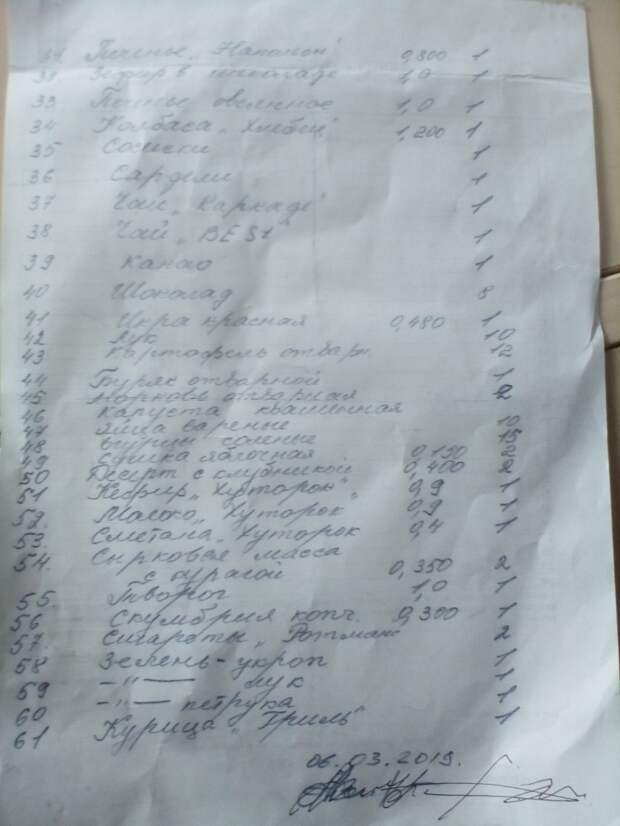 31 Печенье „Наполеон" 0,800 1
32 Зефир в шоколаде 1,0 1
33 Печенье овсянное 1,0 1
34 Колбаса „Хлебн" 1,200 1
35 Сосиски 1
36 Сардели 1
37 Чай „Каркаде" 1
38 Чай „BEST" 1
39 Какао 1
40 Шоколад 8
41 Икра красная 0,480 1
42 Лук 10
43 Картофель отварн 12
44 Буряк отварной 1
45 Морковь отварная 2
46 Капуста квашенная
47 Яйца вареные 10
48 огурцы соленые 15
49 Сушка яблочная 0,150 2
50 Десерт с клубникой 0,400 2
51 Кефир „Хуторок" 0,9 1
52. Молоко „Хуторок 0,9 1
53. Сметана „Хуторок 0,4 1
54. Сырковая масса
с курагой 0,350 2
55. Творог 1,0 1
56 Скумбрия копч. 0,300 1
57. Сигареты „Ротманс 2
58 Зелень-укроп 1
59 –"— лук 1
60 –"— петрука 1
61 Курица „Гриль" 1
06.03.2019.